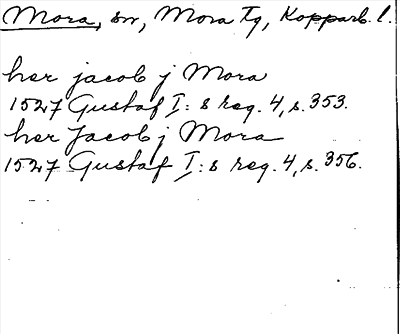 Mora, sn, Mora Tg, Kopparb. l.
her jacob j Mora
1527 Gustaf I:s reg. 4, s. 353.
her Jacob j Mora
1527 Gustaf I:s reg. 4, s. 356.